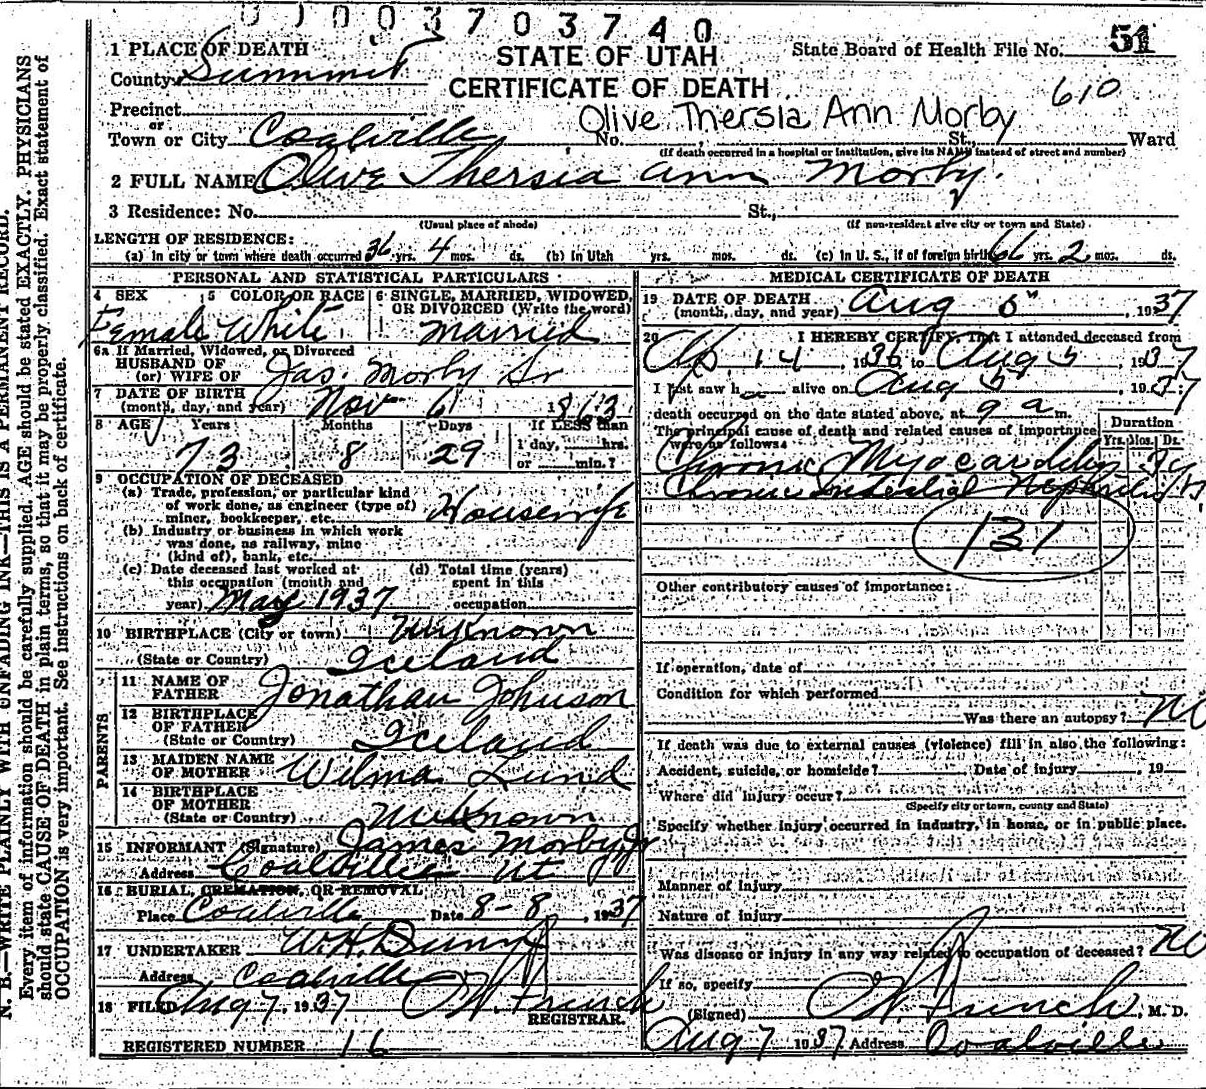 0 1 0 0 3 7 0 3 7 4 0
1 PLACE OF DEATH
STATE OF UTAH
State Board of Health File No. 51
County Summit
CERTIFICATE OF DEATH
610
Precinct
Olive Thersia Ann Morby
or
Town or City Coalville No. St., Ward
(If death occurred in a hospital or institution, give its NAME instead of street and number)
2 FULL NAME Olive Thersia Ann Morby.
3 Residence: No. St.,
(Usual place of abode) (If non-resident give city or town and State)
LENGTH OF RESIDENCE:
(a) In city or town where death occurred 36 yrs. 4 mos. ds. (b) In Utah yrs. mos. ds. (c) In U. S., if of foreign birth 66 yrs. 2 mos. ds.
PERSONAL AND STATISTICAL PARTICULARS
4 SEX 5 COLOR OR RACE 6 SINGLE, MARRIED, WIDOWED, OR DIVORCED (Write the word)
Female White married
6a If Married, Widowed, or Divorced
HUSBAND OF
(or) WIFE OF Jas. Morby Sr
7 DATE OF BIRTH
(month, day, and year) Nov 6 1863
8 AGE Years Months Days If LESS than
1 day, hrs.
73 8 29 or min.?
9 OCCUPATION OF DECEASED
(a) Trade, profession, or particular kind
of work done, as engineer (type of)
miner, bookkeeper, etc. Housewife
(b) Industry or business in which work
was done, as railway, mine
(kind of), bank, etc.
(c) Date deceased last worked at
this occupation (month and
year) May 1937
(d) Total time (years)
spent in this
occupation
10 BIRTHPLACE (City or town) Unknown
(State or Country) Iceland
PARENTS
11 NAME OF
FATHER Jonathan Johnson
12 BIRTHPLACE
OF FATHER
(State or Country) Iceland
13 MAIDEN NAME
OF MOTHER Wilma Lund
14 BIRTHPLACE
OF MOTHER
(State or Country) Unknown
15 INFORMANT (Signature) James Morby Jr
Address Coalville Ut
16 BURIAL, CREMATION, OR REMOVAL
Place Coalville Date 8-8, 1937
17 UNDERTAKER W.H. Dunn
Address Coalville
18 FILED Aug 7, 1937 French
REGISTRAR.
REGISTERED NUMBER 16
MEDICAL CERTIFICATE OF DEATH
19 DATE OF DEATH
(month, day, and year) Aug 5", 1937
20 I HEREBY CERTIFY, That I attended deceased from
14, 1936 to Aug 5, 1937
I last saw h alive on Aug 5 1937
death occurred on the date stated above, at 9 a m.
The principal cause of death and related causes of importance
were as follows:
Duration
Yrs. Mos. Ds.
Chronic Myocarditis 3y
Chronic Interstitial Nephritis
131
Other contributory causes of importance:
If operation, date of
Condition for which performed
Was there an autopsy? No
If death was due to external causes (violence) fill in also the following:
Accident, suicide, or homicide? Date of injury , 19
Where did injury occur?
(Specify city or town, county and State)
Specify whether injury occurred in industry, in home, or in public place.
Manner of injury
Nature of injury
Was disease or injury in any way related to occupation of deceased? No
If so, specify
(Signed) French, M. D.
Aug 7 1937 Address Coalville
N. B.—WRITE PLAINLY WITH UNFADING INK—THIS IS A PERMANENT RECORD.
Every item of information should be carefully supplied. AGE should be stated EXACTLY. PHYSICIANS
should state CAUSE OF DEATH in plain terms, so that it may be properly classified. Exact statement of
OCCUPATION is very important. See instructions on back of certificate.